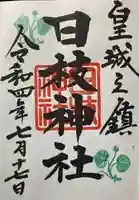 皇城之鎮
日枝神社
令和四年七月十七日